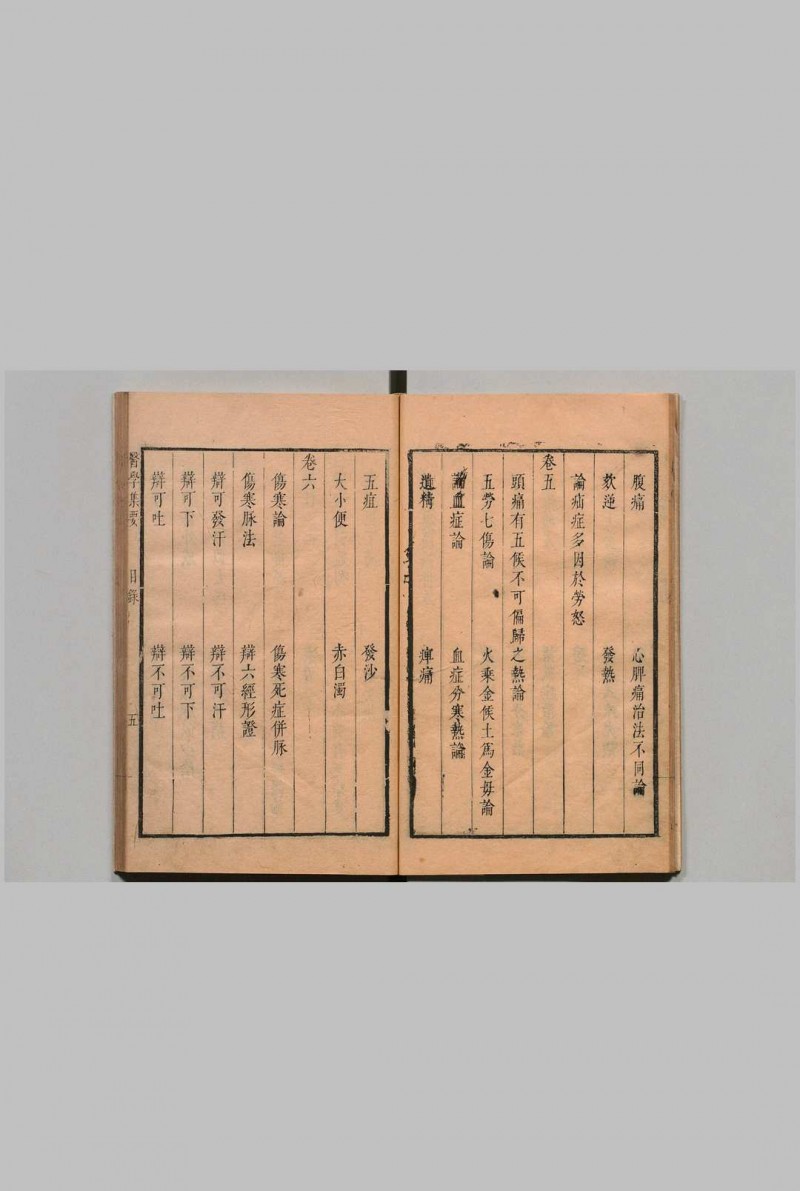 腹痛　心脾痛治法不同論
欬逆　發熱
論疝症多因於勞怒
卷五
頭痛有五候不可偏歸之熱論
五勞七傷論　火乘金候土爲金母論
論血症論　血症分寒熱論
遺精　痺痛
五疸　發沙
大小便　赤白濁
卷六
傷寒論　傷寒死症併脉
傷寒脉法　辯六經形證
辯可發汗　辯不可汗
辯可下　辯不可下
辯可吐　辯不可吐
醫學集要　目錄　五